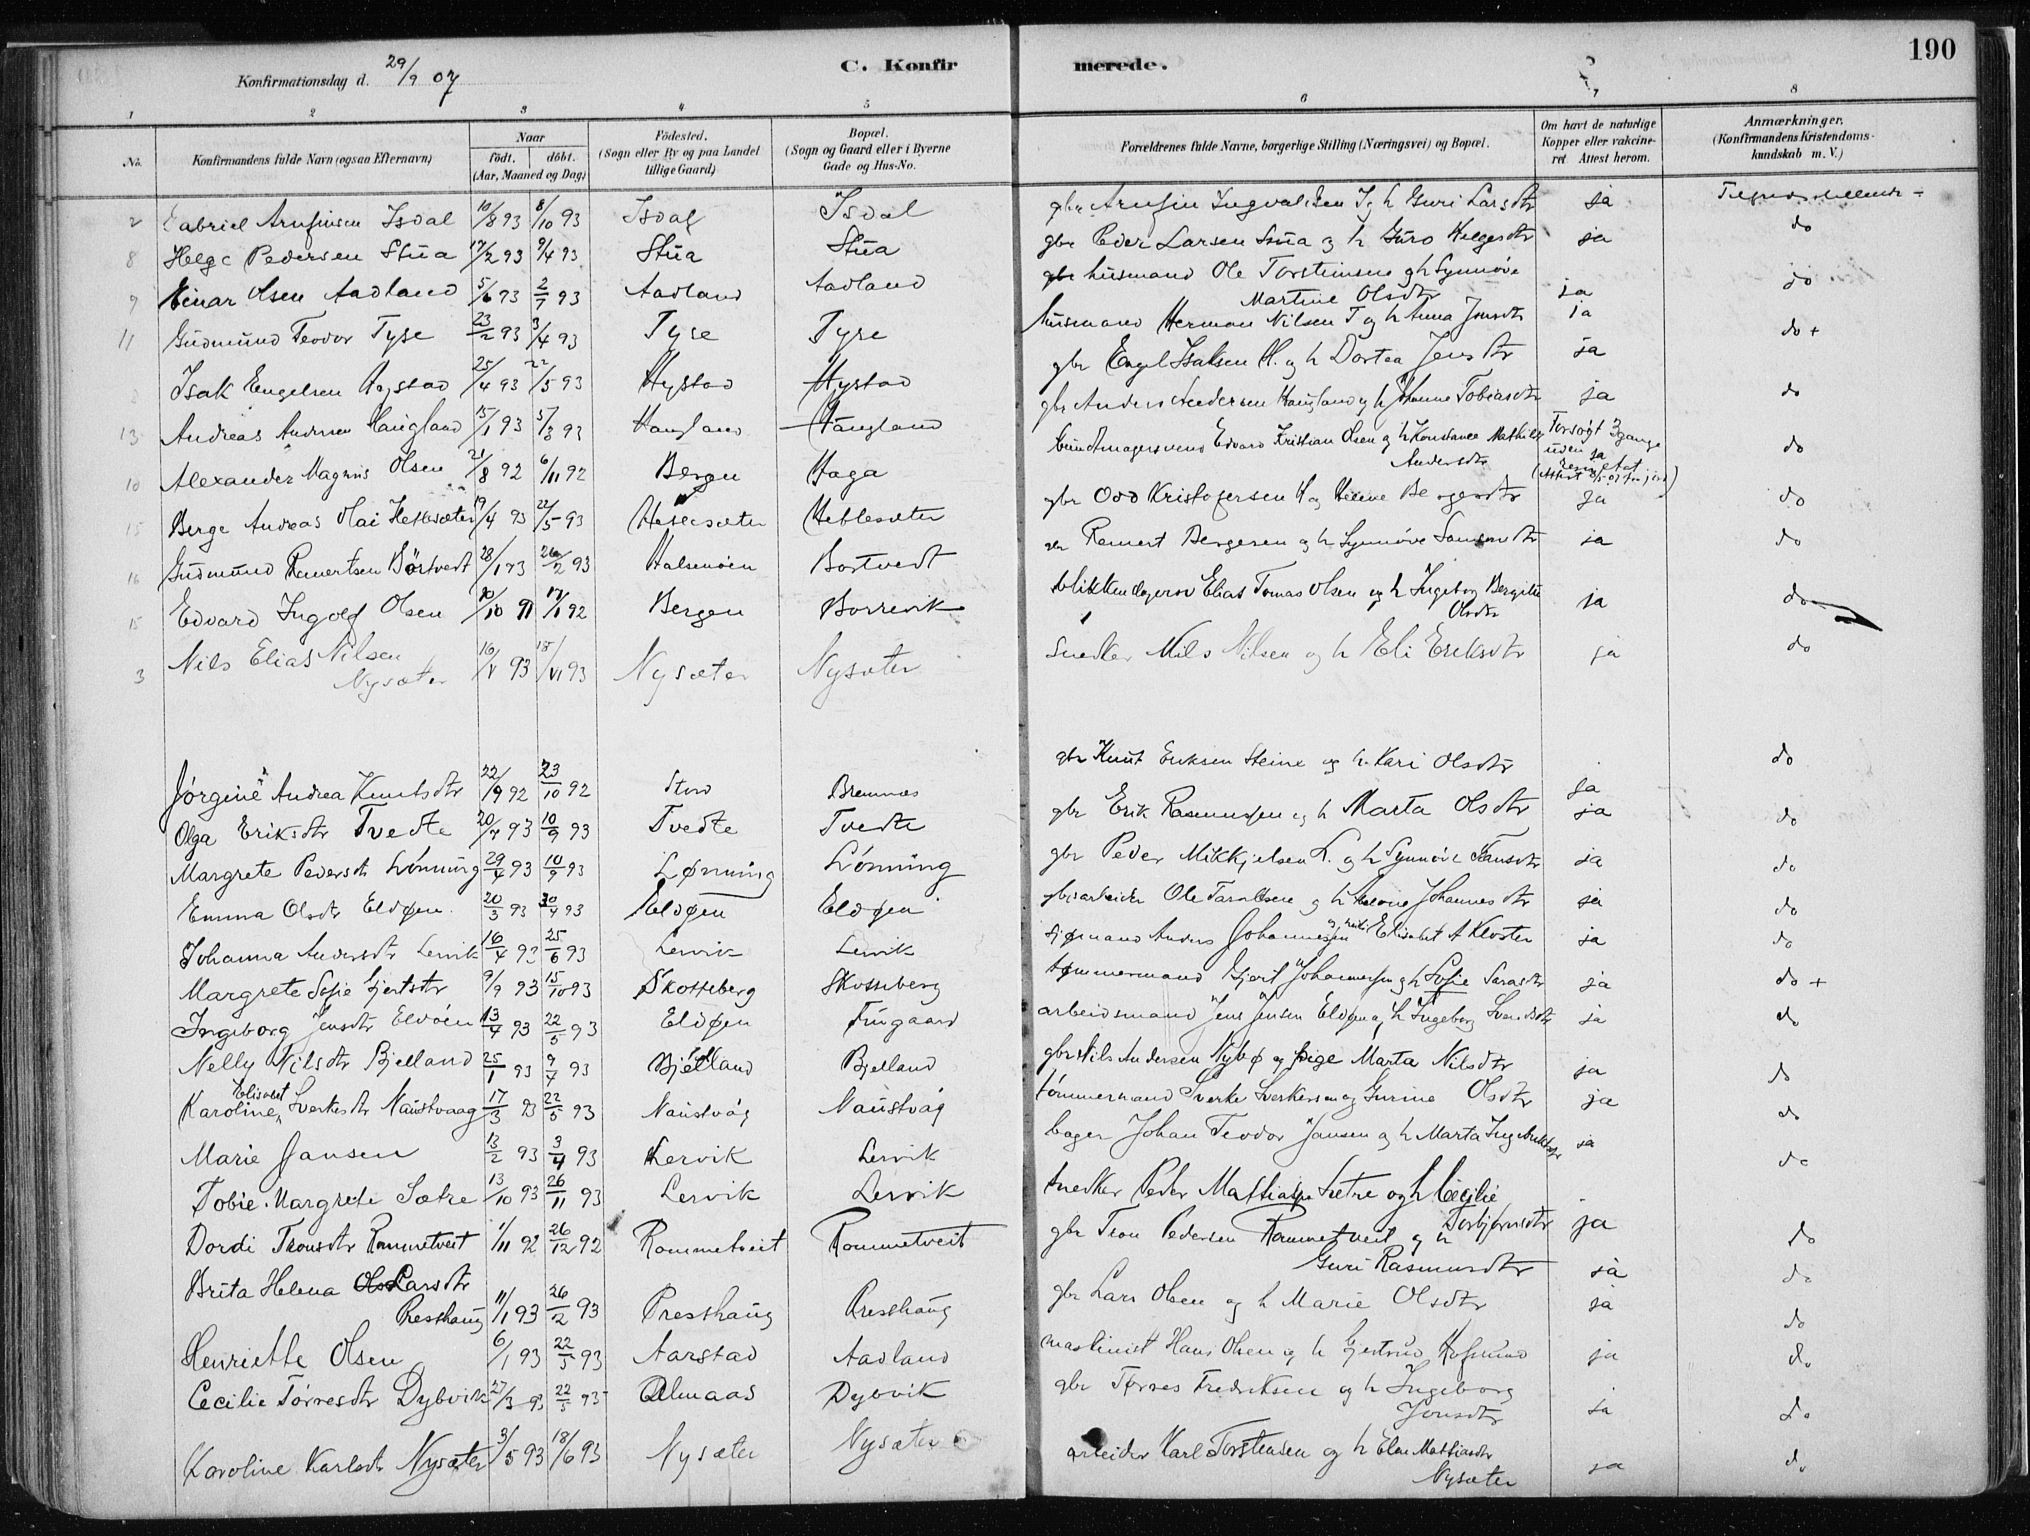 190
Konfirmationsdag d. 29/9 07
C. Konfirmerede.
1 2 3 4 5 6 7 8
No.
Konfirmandens fulde Navn (ogsaa Efternavn)
Naar
födt. döbt.
(Aar, Maaned og Dag)
Födested.
(Sogn eller By og paa Landet
tillige Gaard)
Bopæl.
(Sogn og Gaard eller i Byerne
Gade og Hus-No.
Forældrenes fulde Navne, borgerlige Stilling (Næringsvei) og Bopæl.
Om havt de naturlige
Kopper eller vakcine-
ret. Attest herom.
Anmærkninger.
(Konfirmandens Kristendoms-
kundskab m. V.)
2 Gabriel Arnfinsen Isdal 10/8 93 8/10 93 Isdal Isdal gbr. Arnfin Ingvaldsen I. og h Guri Larsdtr ja Tilfredsstillende
8 Helge Pedersen Stua 17/2 93 9/4 93 Stua Stua gbr Peder Larsen Stua og h Guro Helgesdtr ja do
9 Einar Olsen Aadland 5/6 93 2/7 93 Aadland Aadland husmand Ole Torsteinsen og h Synnöve
Martine Olsdtr ja do
11 Gudmund Teodor Tyse 23/2 93 3/4 93 Tyse Tyse husmand Herman Nilsen T og h Anna Jonsdtr ja do +
Isak Engelsen Hystad 25/4 93 22/5 93 Hystad Hystad gbr Engel Isaksen H. og h Dortea Jensdtr ja
13 Andreas Andersen Haugland 15/1 93 5/3 93 Haugland Haugland gbr Anders Andersen Haugland og h Johanne Tobiasdtr ja do
10 Alexander Magnus Olsen 21/8 92 6/11 92 Bergen Haga Bundtmagersvend Edvard Kristian Olsen og h Konstance Mathilde
Andersdtr Forsøgt 3 gange
uden do
15 Berge Andreas Olai Heblesæter 19/4 93 22/5 93 Heblesæter Heblesæter gbr Odd Kristofersen H og Helene Bergesdtr ja do
16 Gudmund Remertsen Börtvedt 28/1 93 26/2 93 Halsenöen Bortvedt Remert Bergesen og h Synnöve Samsondtr ja do
15 Edvard Ingolf Olsen 10/10 91 17/1 92 Bergen Borrevik blikkenslagersv Elias Tomas Olsen og h Ingeborg Bergitte
Olsdtr ja do
3 Nils Elias Nilsen
Nysæter 16/V 93 18/VI 93 Nysæter Nysæter Snedker Nils Nilsen og h Eli Eriksdtr ja do
Jörgine Andrea Knutsdtr 22/9 92 23/10 92 Stord Bremnes gbr Knut Eriksen Steine og h. Kari Olsdtr ja do
Olga Eriksdtr Tvedte 20/7 93 10/9 93 Tvedte Tvedte gbr Erik Rasmussen og h Marta Olsdtr ja do
Margrete Pedersdt Lönning 29/4 93 10/9 93 Lønning Lönning gbr Peder Mikkjelsen L. og h Synnöve Hansdtr ja do
Emma Olsdtr Eldøen 20/3 93 30/4 93 Eldøen Eldøen arbeider Ole Taraldsen og h Johannesdtr ja do
Johanna Andersdtr Lervik 16/4 93 25/6 93 Lervik Lervik sjømand Anders Johannessen og Elisabet A Kloster ja do
Margrete Sofie Gjertsdtr 9/9 93 15/10 93 Skotteberg Skotteberg tømmermand Gjert Johannessen og h Sofie Larsdtr ja do +
Ingeborg Jensdtr Eldöen 13/4 93 22/5 93 Eldøen Tungaard arbeidsmand Jens Jensen Eldøen og h Ingeborg Svendsdtr ja do
Nelly Nilsdtr Bjelland 25/1 93 9/4 93 Bjelland Bjelland gbr Nils Andersen Nybø og pige Marta Nilsdtr ja do
Karoline Elisabet Sverkesdtr Naustvaag 17/3 93 22/5 93 Naustvåg Naustvåg tömmermand Sverke Sverkesen og Gurine Olsdtr ja do
Marie Jansen 13/2 93 3/4 93 Lervik Lervik bager Johan Teodor Jansen og h Marta Ingebriktsdtr ja do
Tobie Margrete Sætre 13/10 93 26/11 93 Lervik Lervik snedker Peder Mathiassen Sætre og h Cecilie
Torbjørnsdtr ja
Dordi Tronsdtr Rommetveit 1/11 92 26/12 92 Rommetveit Rommetveit gbr Tron Pedersen Rommetveit og h
Guri Rasmusdtr ja do
Brita Helena Larsdtr
Presthaug 11/1 93 26/2 93 Presthaug Presthaug gbr Lars Olsen og h Marie Olsdtr ja do
Henriette Olsen 6/1 93 22/5 93 Aarstad Aadland maskinist Hans Olsen og h Gjertrud Hofsund ja do
Cecilie Törresdtr Dybvik 27/3 93 22/5 93 Almaas Dybvik gbr Tørres Fredriksen og h Ingeborg
Jonsdtr ja do
Karoline Karlsdt Nysæter 3/5 93 18/6 93 Nysæter Nysæter arbeider Karl Torstensen og h Elen Mathiasdtr
Nysæter ja do